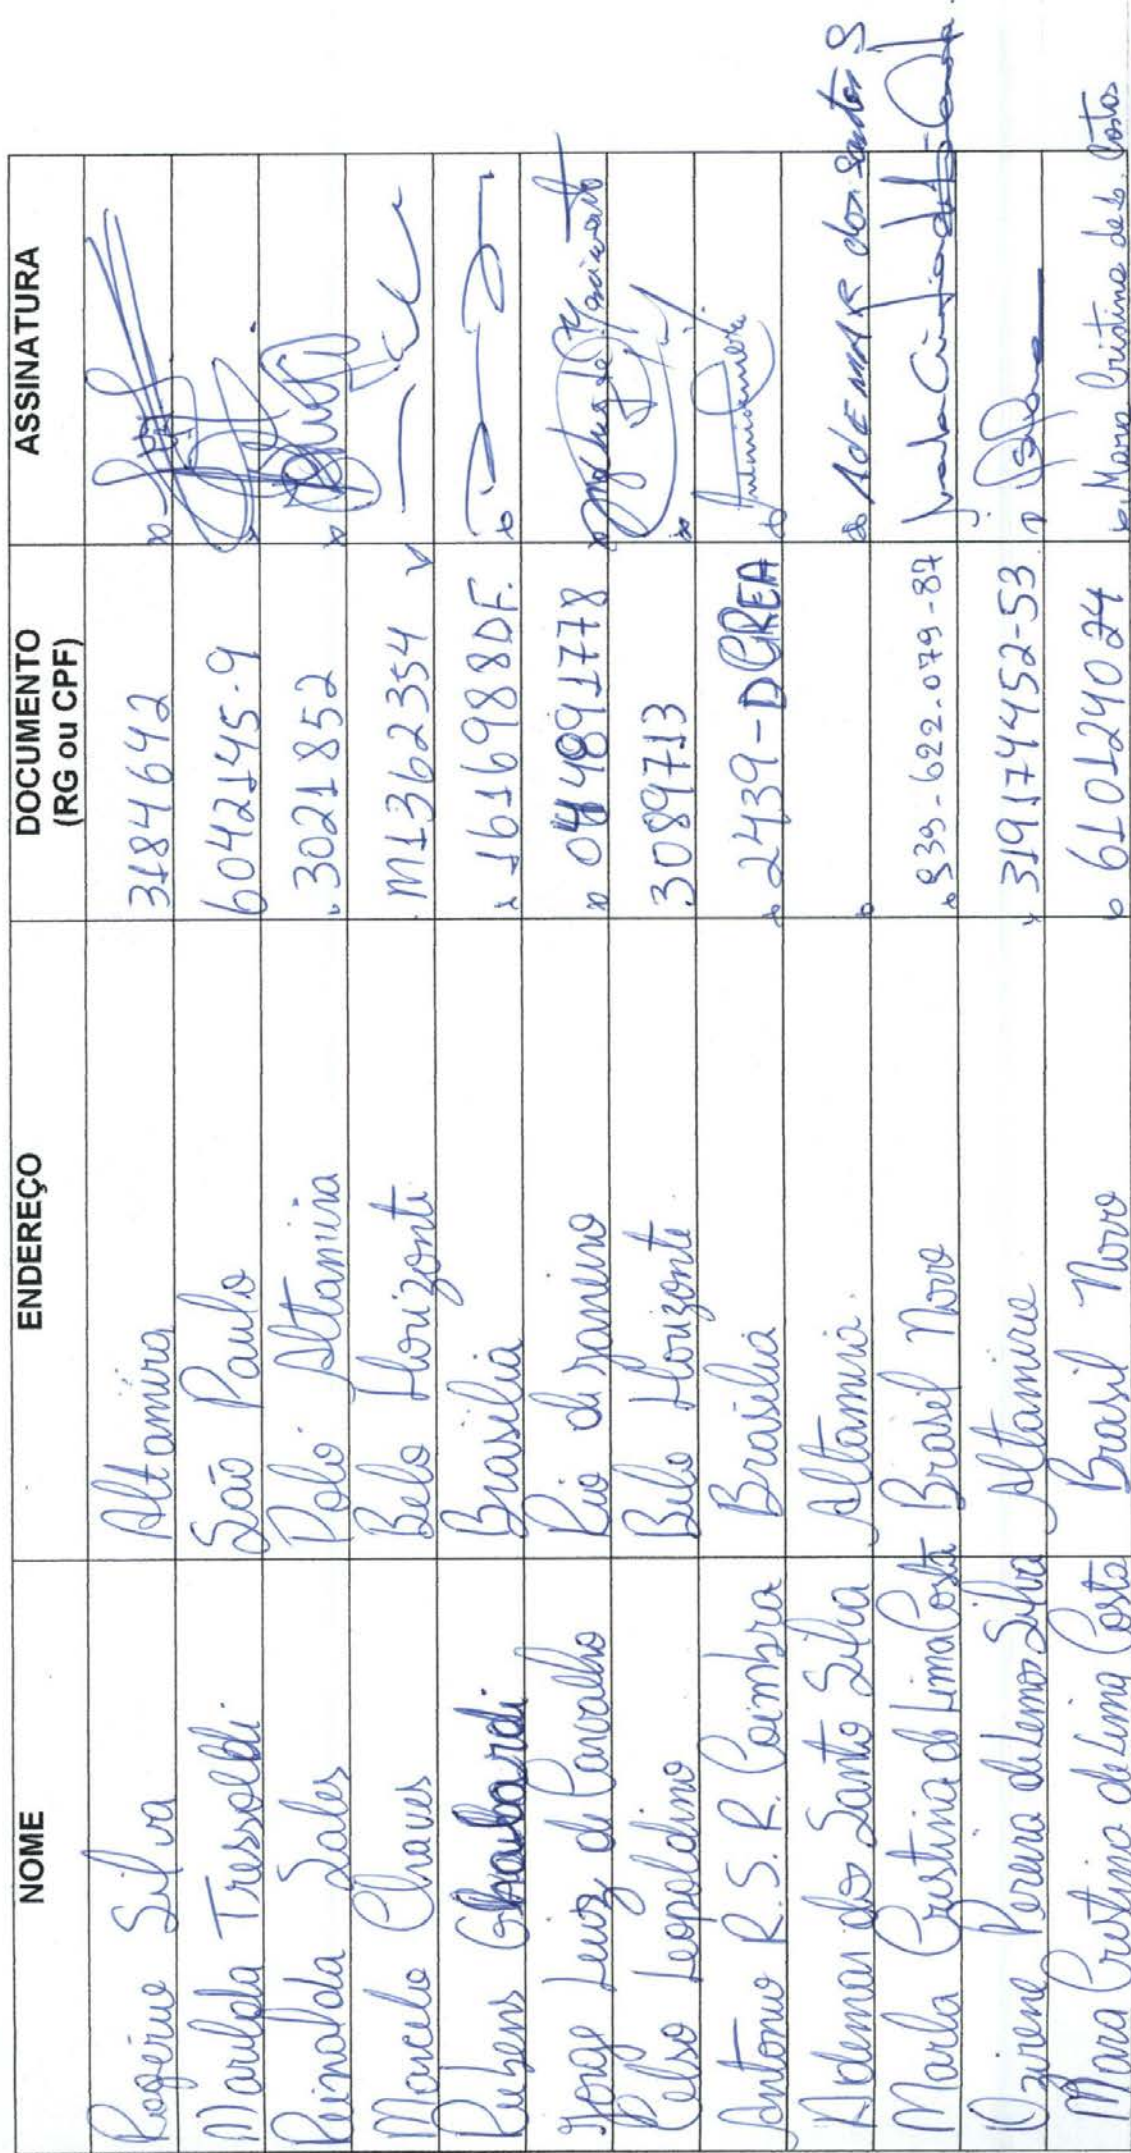 NOME ENDEREÇO DOCUMENTO (RG ou CPF) ASSINATURA
Rogério Silva Altamira 3184642
Marilda Tressoldi São Paulo 6042145-9
Reinalda Sales Polo Altamira 3021852
Marcelo Chaves Belo Horizonte M1362354
Rubens Brasília 1616988DF.
Jorge Luiz de Carvalho Rio de Janeiro 044891778
Celso Leopoldino Belo Horizonte 3089713
Antonio R.S.R. Coimbra Brasília 2439-DCREA
Ademar dos Santo Silva Altamira. AdEMAR dos Santos S
Marla Cristina de Lima Costa Brasil Novo 939-622.079-87
Ozirene Pereira de Lemos Silva Altamira 319174452-53
Mara Cristina de Lima Costa Brasil Novo 610124024 Mara Cristina de L. Costa